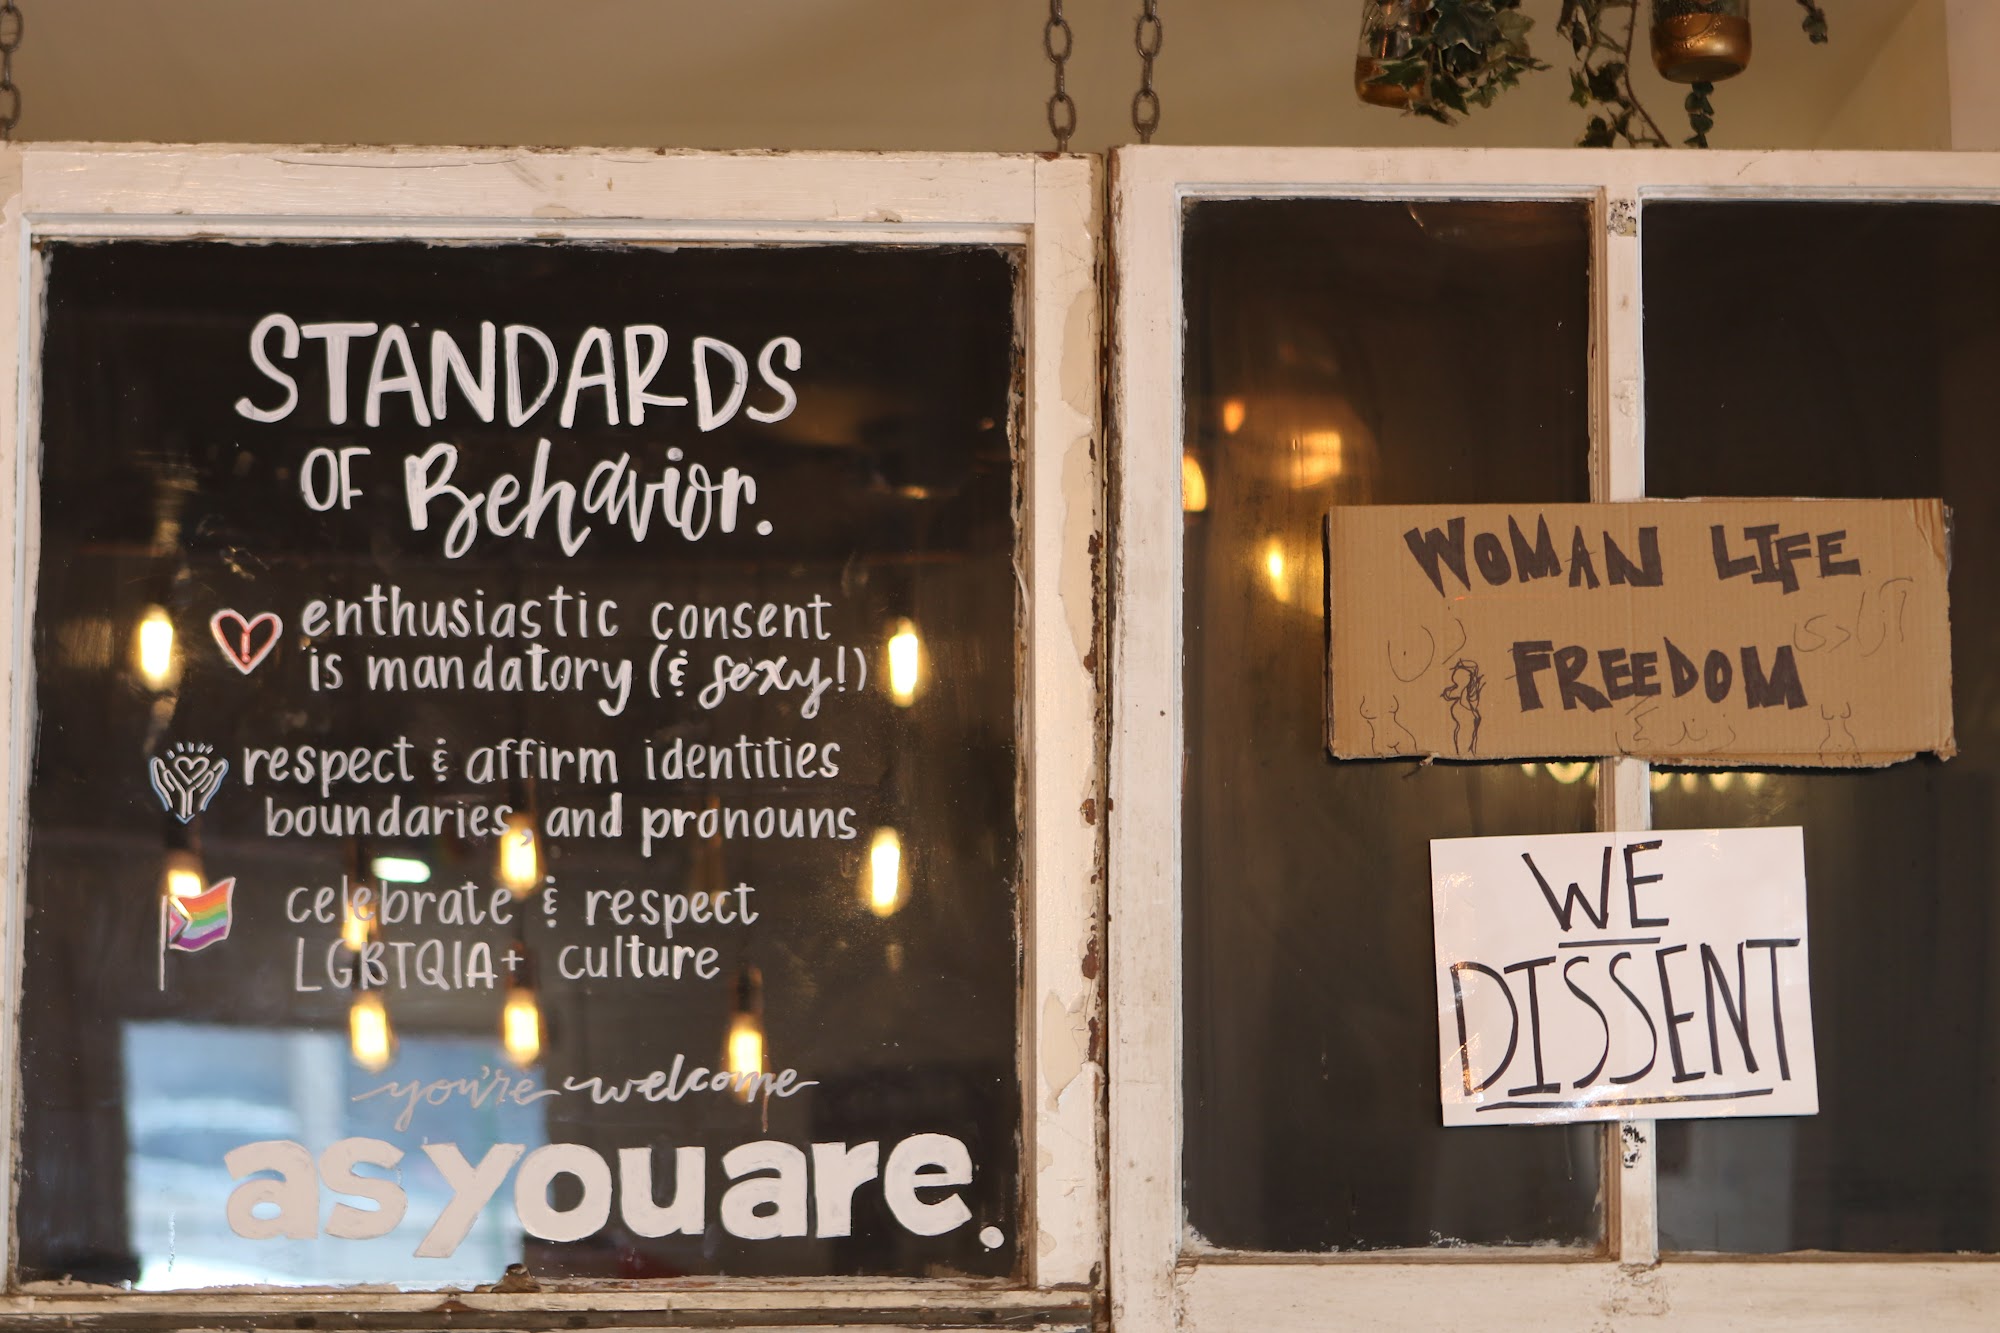 STANDARDS
OF Behavior.
enthusiastic consent
is mandatory (& sexy!)
respect & affirm identities
boundaries, and pronouns
celebrate & respect
LGBTQIA+ culture
you're welcome
asyouare.
WOMAN LIFE
زن
آزادی
FREEDOM
زندگی
WE
DISSENT